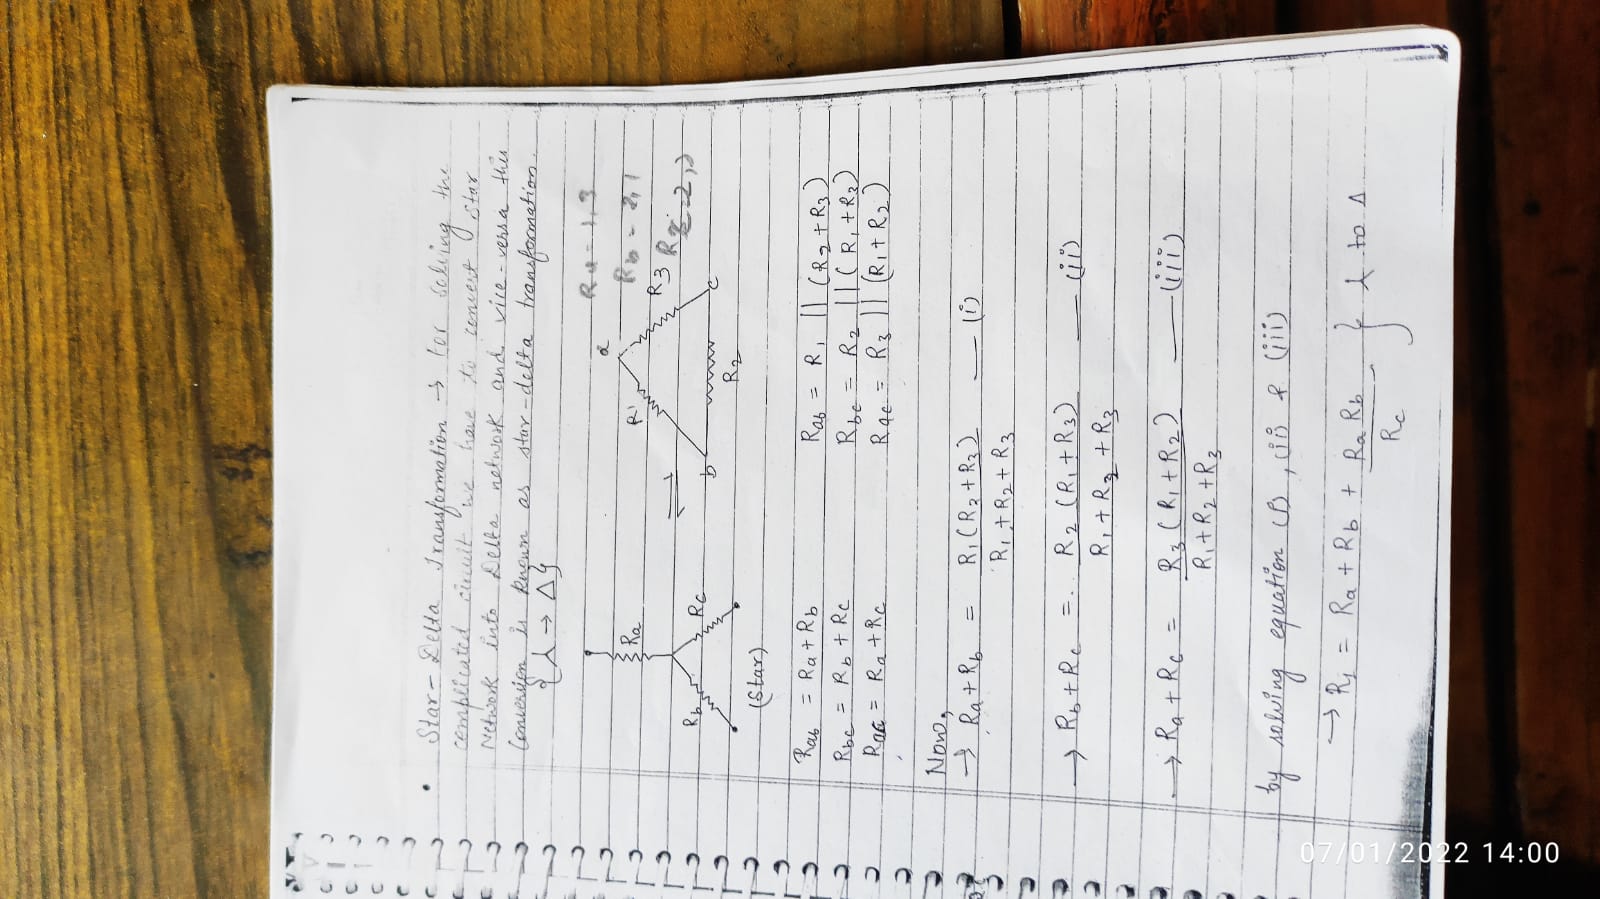 • Star-Delta Transformation → for solving the
complicated circuit we have to convert star
Network into Delta network and vice-versa this
Conversion is known as star-delta transformation.
{⅄ → Δ}
Ra - 1,3
Rb - 2,1
Ra
Rb
Rc
(Star)
a
R1
R3
b
R2
c
Rab = Ra + Rb
Rab = R1 || (R2 + R3)
Rbc = Rb + Rc
Rbc = R2 || (R1 + R3)
Rac = Ra + Rc
Rac = R3 || (R1 + R2)
Now,
→ Ra + Rb = R1 (R2 + R3) / R1 + R2 + R3 — (i)
→ Rb + Rc = R2 (R1 + R3) / R1 + R2 + R3 — (ii)
→ Ra + Rc = R3 (R1 + R2) / R1 + R2 + R3 — (iii)
by solving equation (i), (ii) & (iii)
→ R1 = Ra + Rb + Ra Rb / Rc } ⅄ to Δ
07/01/2022 14:00